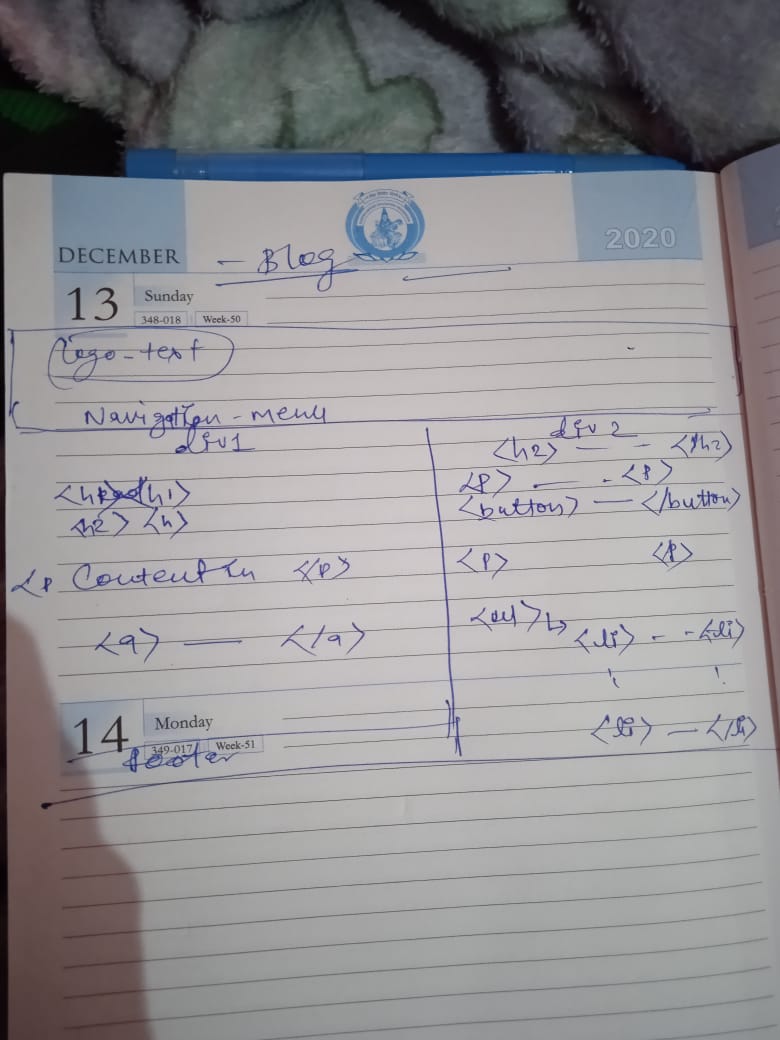 DECEMBER
2020
- Blog
13
Sunday
348-018
Week-50
logo-text
Navigation-menu
div 1
<h2> <h>
<p Content in </p>
<a> — </a>
div 2
<h2> — - </h2>
<p> — - <p>
<button> — </button>
<p> <p>
<ul> ↳
<li> - - <li>
<li> — </li>
14
Monday
349-017
Week-51
footer